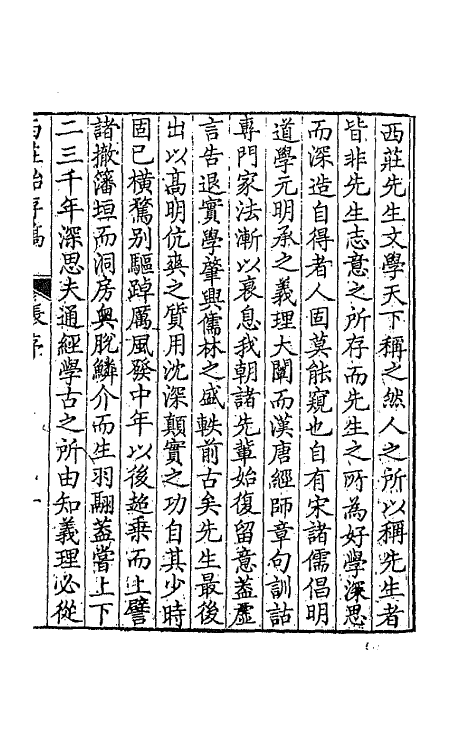 西莊先生文學天下稱之然人之所以稱先生者
皆非先生志意之所存而先生之所為好學深思
而深造自得者人固莫能窺也自有宋諸儒倡明
道學元明承之義理大闡而漢唐經師章句訓詁
專門家法漸以衰息我朝諸先輩始復留意蓋虛
言告退實學肇興儒林之盛軼前古矣先生最後
出以高明伉爽之質用沈深顛實之功自其少時
固已橫騖別驅踔厲風發中年以後趍乗而上譬
諸撤籓垣而洞房奥脫鱗介而生羽翮蓋嘗上下
二三千年深思夫通經學古之所由知義理必從
西莊始存稿 序 一